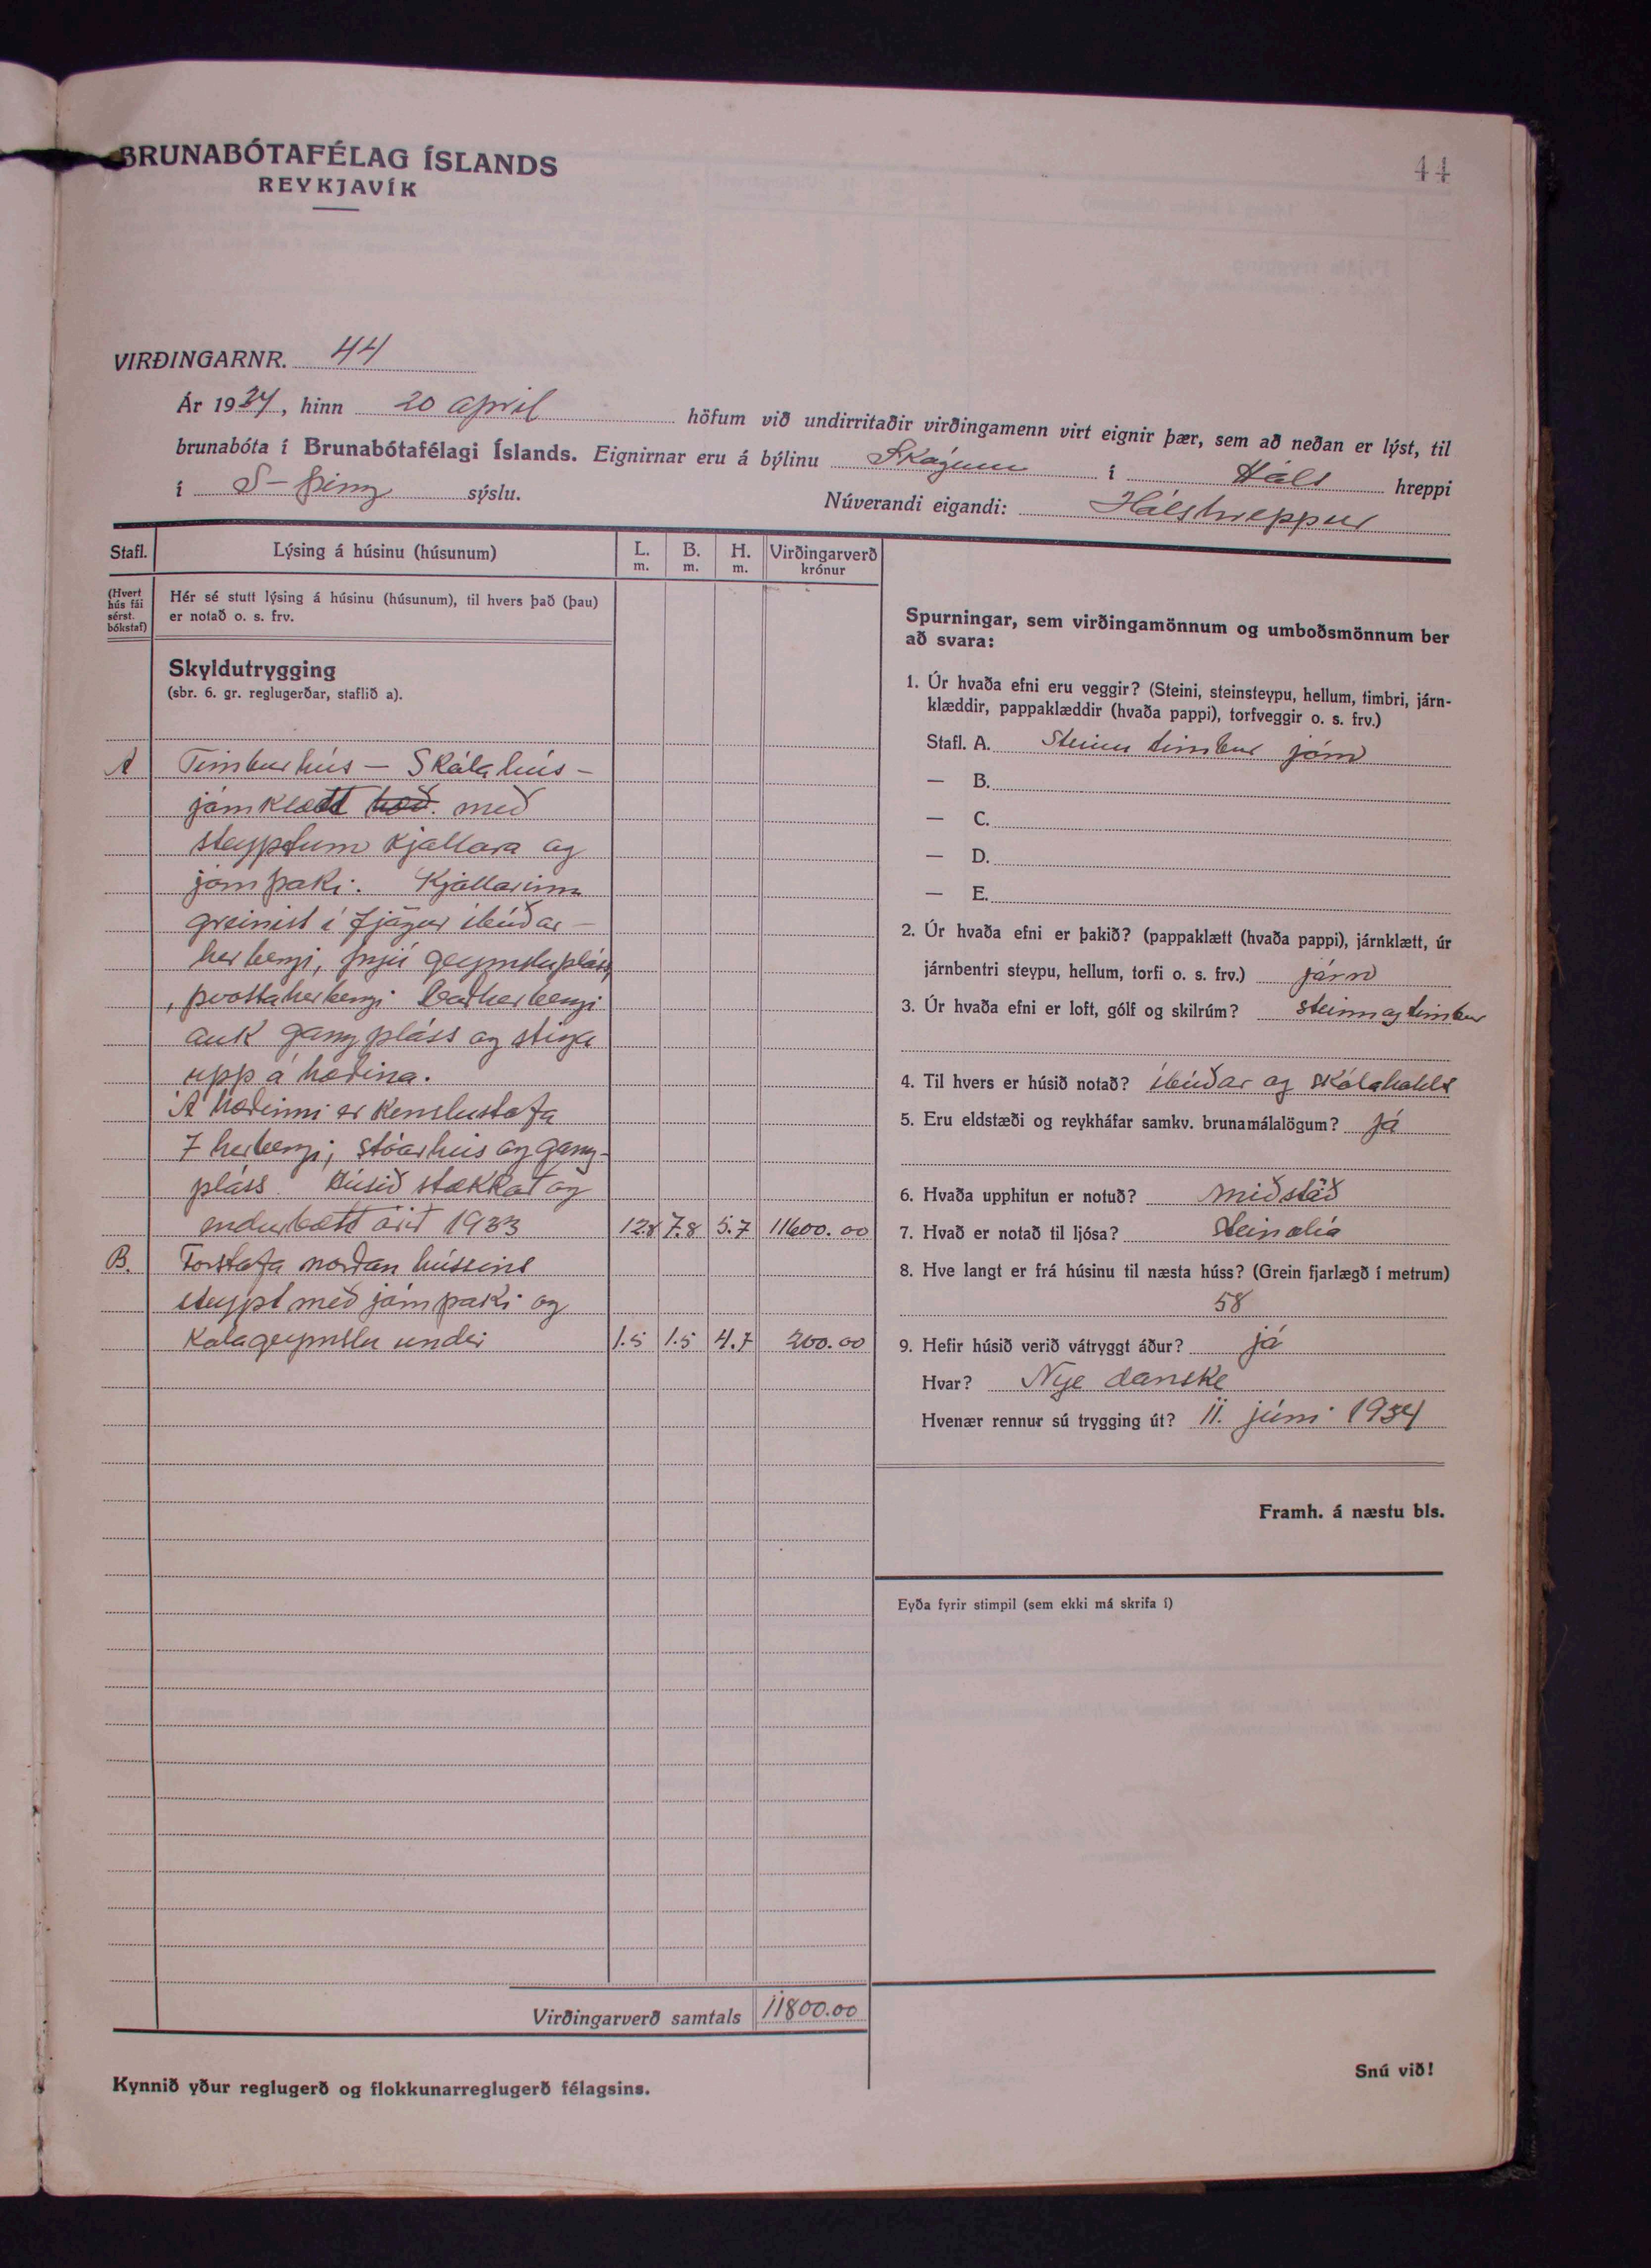 BRUNABÓTAFÉLAG ÍSLANDS
REYKJAVÍK
44
VIRÐINGARNR. 44
Ár 1934, hinn 20 april höfum við undirritaðir virðingamenn virt eignir þær, sem að neðan er lýst, til
brunabóta í Brunabótafélagi Íslands. Eignirnar eru á býlinu Skógum í Háls hreppi
í S-þing sýslu. Núverandi eigandi: Hálshreppur
Stafl. Lýsing á húsinu (húsunum) L. m. B. m. H. m. Virðingarverð krónur
(Hvert hús fái sérst. bókstaf)
Hér sé stutt lýsing á húsinu (húsunum), til hvers það (þau)
er notað o. s. frv.
Skyldutrygging
(sbr. 6. gr. reglugerðar, staflið a).
A Timburhús - Skólahús -
járnklætt hæð. með
steyptum kjallara og
járnþaki. Kjallarinn
greinist í fjögur íbúðar-
herbergi, þrjú geymslupláss
, þvottaherbergi baðherbergi
auk gangpláss og stiga
upp á hæðina.
Á hæðinni er kenslustofa
7 herbergi; stóarhús og gang-
pláss. Húsið stækkað og
endurbætt árið 1933 12.8 7.8 5.7 11600.00
B. Forstofa norðan hússins
steypt með járnþaki og
kolageymslu undir 1.5 1.5 4.7 200.00
Virðingarverð samtals 11800.00
Kynnið yður reglugerð og flokkunarreglugerð félagsins.
Spurningar, sem virðingamönnum og umboðsmönnum ber
að svara:
1. Úr hvaða efni eru veggir? (Steini, steinsteypu, hellum, timbri, járn-
klæddir, pappaklæddir (hvaða pappi), torfveggir o. s. frv.)
Stafl. A. Steinn timbur járn
— B.
— C.
— D.
— E.
2. Úr hvaða efni er þakið? (pappaklætt (hvaða pappi), járnklætt, úr
járnbentri steypu, hellum, torfi o. s. frv.) járn
3. Úr hvaða efni er loft, gólf og skilrúm? steinn og timbur
4. Til hvers er húsið notað? íbúðar og skólahalds
5. Eru eldstæði og reykháfar samkv. brunamálalögum? já
6. Hvaða upphitun er notuð? miðstöð
7. Hvað er notað til ljósa? Steinolía
8. Hve langt er frá húsinu til næsta húss? (Grein fjarlægð í metrum)
58
9. Hefir húsið verið vátryggt áður? já
Hvar? Nye danske
Hvenær rennur sú trygging út? 11. júní 1934
Framh. á næstu bls.
Eyða fyrir stimpil (sem ekki má skrifa í)
Snú við!